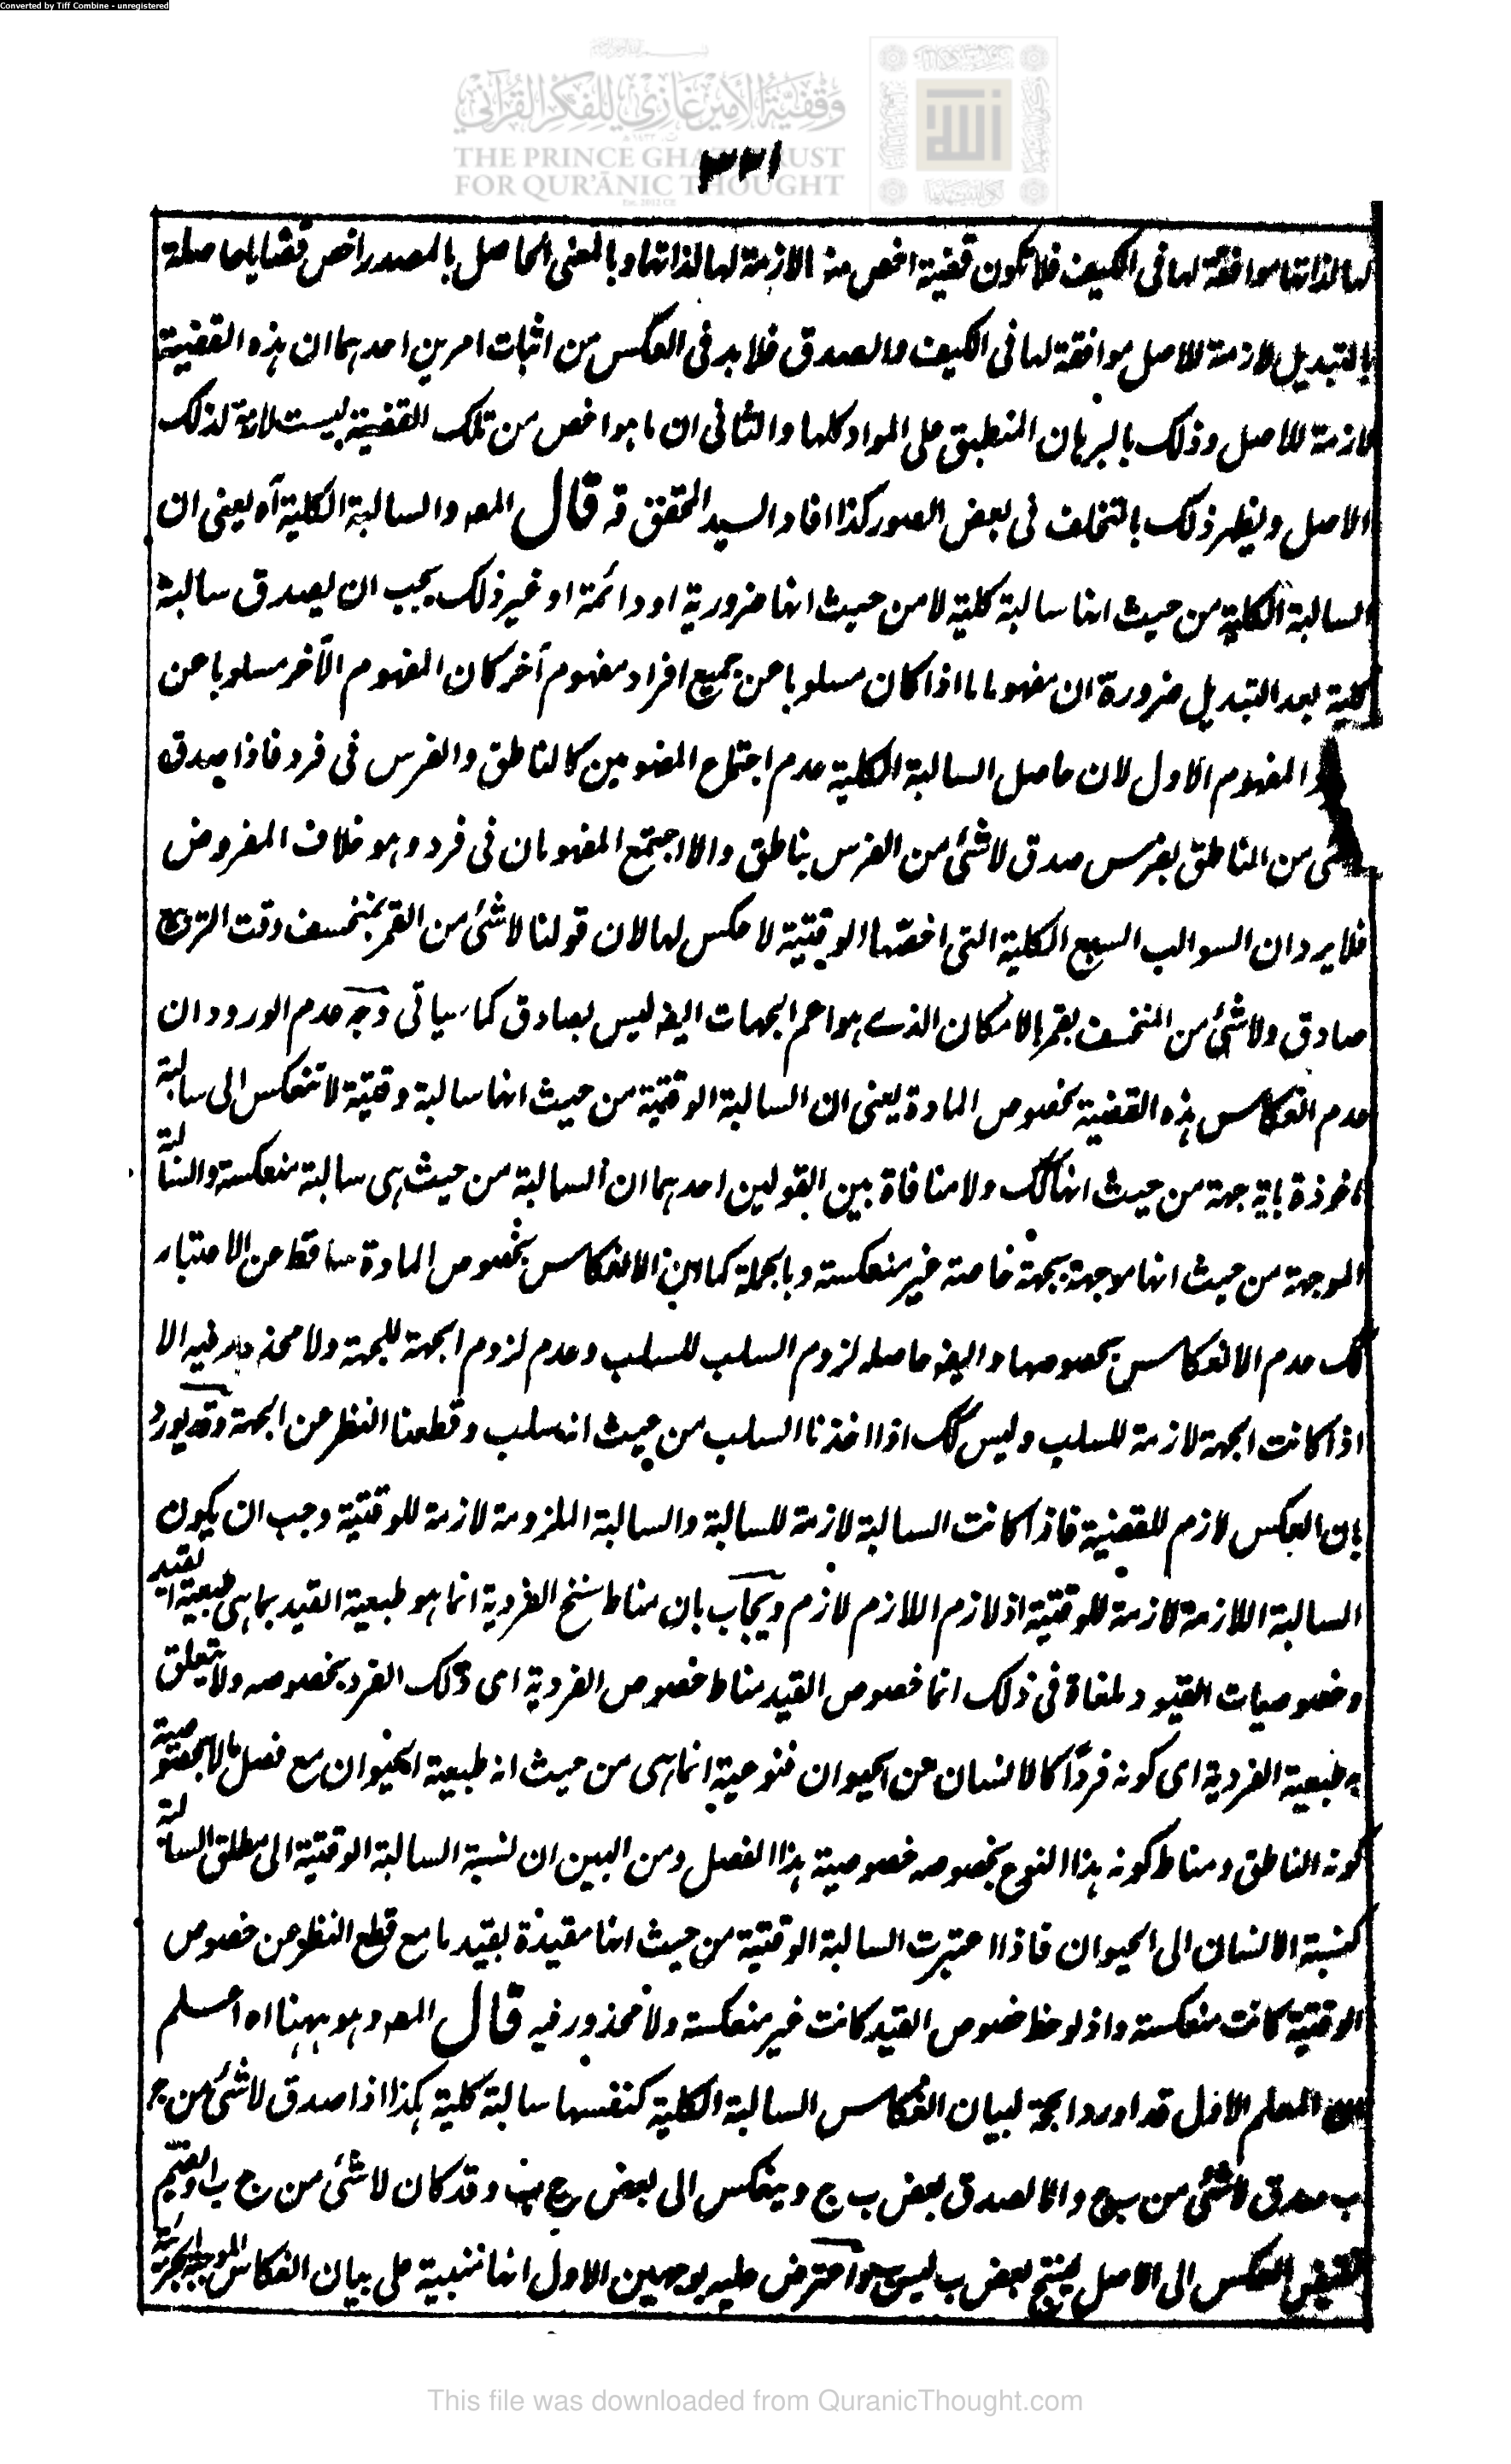 Converted by Tiff Combine - unregistered
وقفية الأمير غازي للفكر القرآني
THE PRINCE GHAZI TRUST
FOR QUR'ĀNIC THOUGHT
٣٢١
لها لذاتها موافقة لها فى الكيف فلا تكون قضية اخص منه اللازمة لها لذاتها وبالمعنى الحاصل بالمصدر اخص قضايا حاصلة
بالتبديل لازمة للاصل موافقة لها فى الكيف والصدق فلا بد فى العكس من اثبات امرين احدهما ان هذه القضية
لازمة للاصل وذلك بالبرهان المنطبق على المواد كلها والثانى ان ما هو اخص من تلك القضية ليست لازمة لذلك
الاصل ويظهر ذلك بالتخلف فى بعض الصور كذا افاد السيد المحقق قد قال المصـ والسالبة الكلية آه يعنى ان
السالبة الكلية من حيث انها سالبة كلية لا من حيث انها ضرورية او دائمة او غير ذلك يجب ان يصدق سالبة
كلية بعد التبديل ضرورة ان مفهوما ما اذا كان مسلوبا عن جميع افراد مفهوم آخر كان المفهوم الآخر مسلوبا عن
المفهوم الاول لان حاصل السالبة الكلية عدم اجتماع المفهومين كالناطق والفرس فى فرد فاذا صدق
شئ من الناطق بفرس صدق لا شئ من الفرس بناطق والا اجتمع المفهومان فى فرد وهو خلاف المفروض
فلا يرد ان السوالب السبع الكلية التى اخصها الوقتية لا عكس لها لان قولنا لا شئ من القمر بمنخسف وقت التربيع
صادق ولا شئ من المنخسف بقمر بالامكان الذى هو اعم الجهات ايضـ ليس بصادق كما سياتى وجه عدم الورود ان
عدم انعكاس هذه القضية بخصوص المادة يعنى ان السالبة الوقتية من حيث انها سالبة وقتية لا تنعكس الى سالبة
ماخوذة باية جهة من حيث انها كك ولا منافاة بين القولين احدهما ان السالبة من حيث هى سالبة منعكسة والسالبة
الموجهة من حيث انها موجهة بجهة خاصة غير منعكسة وبالجملة كما ان الانعكاس بخصوص المادة ساقط عن الاعتبار
كك عدم الانعكاس بخصوصها وايضـ حاصله لزوم السلب للسلب وعدم لزوم الجهة للجهة ولا محذور فيه الا
اذا كانت الجهة لازمة للسلب وليس كك اذا اخذنا السلب من حيث انه سلب وقطعنا النظر عن الجهة وقد يورد
بان العكس لازم للقضية فاذا كانت السالبة لازمة للسالبة والسالبة الملزومة لازمة للوقتية وجب ان يكون
السالبة اللازمة لازمة للوقتية اذ لازم اللازم لازم ويجاب بان مناط سنخ الفردية انما هو طبيعة القيد بما هى طبيعة القيد
وخصوصيات القيود ملغاة فى ذلك انما خصوص القيد مناط خصوص الفردية اى ذلك الفرد بخصوصه ولا يتعلق
به طبيعة الفردية اى كونه فردا كالانسان من الحيوان فنوعية انما هى من حيث انه طبيعة الحيوان مع فصل ما لا بخصوصية
كونه الناطق ومناط كونه هذا النوع بخصوصه خصوصية هذا الفصل ومن البين ان نسبة السالبة الوقتية الى مطلق السالبة
كنسبة الانسان الى الحيوان فاذا اعتبرت السالبة الوقتية من حيث انها مقيدة بقيد ما مع قطع النظر عن خصوص
الوقتية كانت منعكسة واذ لوحظ خصوص القيد كانت غير منعكسة ولا محذور فيه قال المصـ وهو ههنا اه اعلم
ان المعلم الاول قد اورد الحجة لبيان انعكاس السالبة الكلية كنفسها سالبة كلية هكذا اذا صدق لا شئ من ج
ب صدق لا شئ من ب ج والا لصدق بعض ب ج وينعكس الى بعض ج ب وقد كان لا شئ من ج ب او نضم
نقيض العكس الى الاصل ينتج بعض ب ليس ب واعترض عليه بوجهين الاول انها مبنية على بيان انعكاس الموجبة الجزئية
This file was downloaded from QuranicThought.com